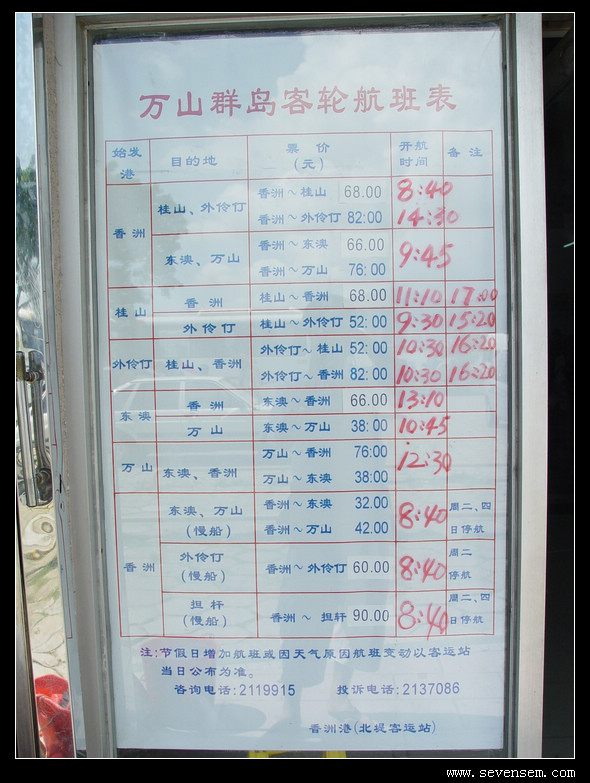 万山群岛客轮航班表
始发港 目的地 票价(元) 开航时间 备注
香洲 桂山、外伶仃 香洲~桂山 68.00 8:40
香洲~外伶仃 82:00 14:30
东澳、万山 香洲~东澳 66.00 9:45
香洲~万山 76:00
桂山 香洲 桂山~香洲 68.00 11:10 17:00
外伶仃 桂山~外伶仃 52:00 9:30 15:20
外伶仃 桂山、香洲 外伶仃~桂山 52:00 10:30 16:20
外伶仃~香洲 82:00 10:30 16:20
东澳 香洲 东澳~香洲 66.00 13:10
万山 东澳~万山 38:00 10:45
万山 东澳、香洲 万山~香洲 76:00 12:30
万山~东澳 38:00
香洲 东澳、万山(慢船) 香洲~东澳 32.00 8:40 周二、四日停航
香洲~万山 42.00
外伶仃(慢船) 香洲~外伶仃 60.00 8:40 周二停航
担杆(慢船) 香洲~担轩 90.00 8:40 周二、四日停航
注:节假日增加航班或因天气原因航班变动以客运站
当日公布为准。
咨询电话:2119915 投诉电话:2137086
香洲港(北堤客运站)
www.sevensem.com